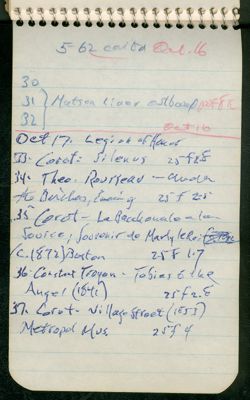 5 62 Oct. 16
30
31 Matson Liner
32
Oct 16
Oct 17. Legion of Honor
33. Corot: Silenus 25 f
34. Theo. Rousseau - Under
the Birches, Evening 25 f 2.5
35 Corot - La Bacchanale a la
Source; Souvenir de Marly-le-Roi
(c. 1872) Boston 25 f 1.7
36. Constant Troyon - Tobias & the
Angel (1841) 25 f 2.8
37. Corot - Village Street (1853)
Metropol Mus 25 f 4